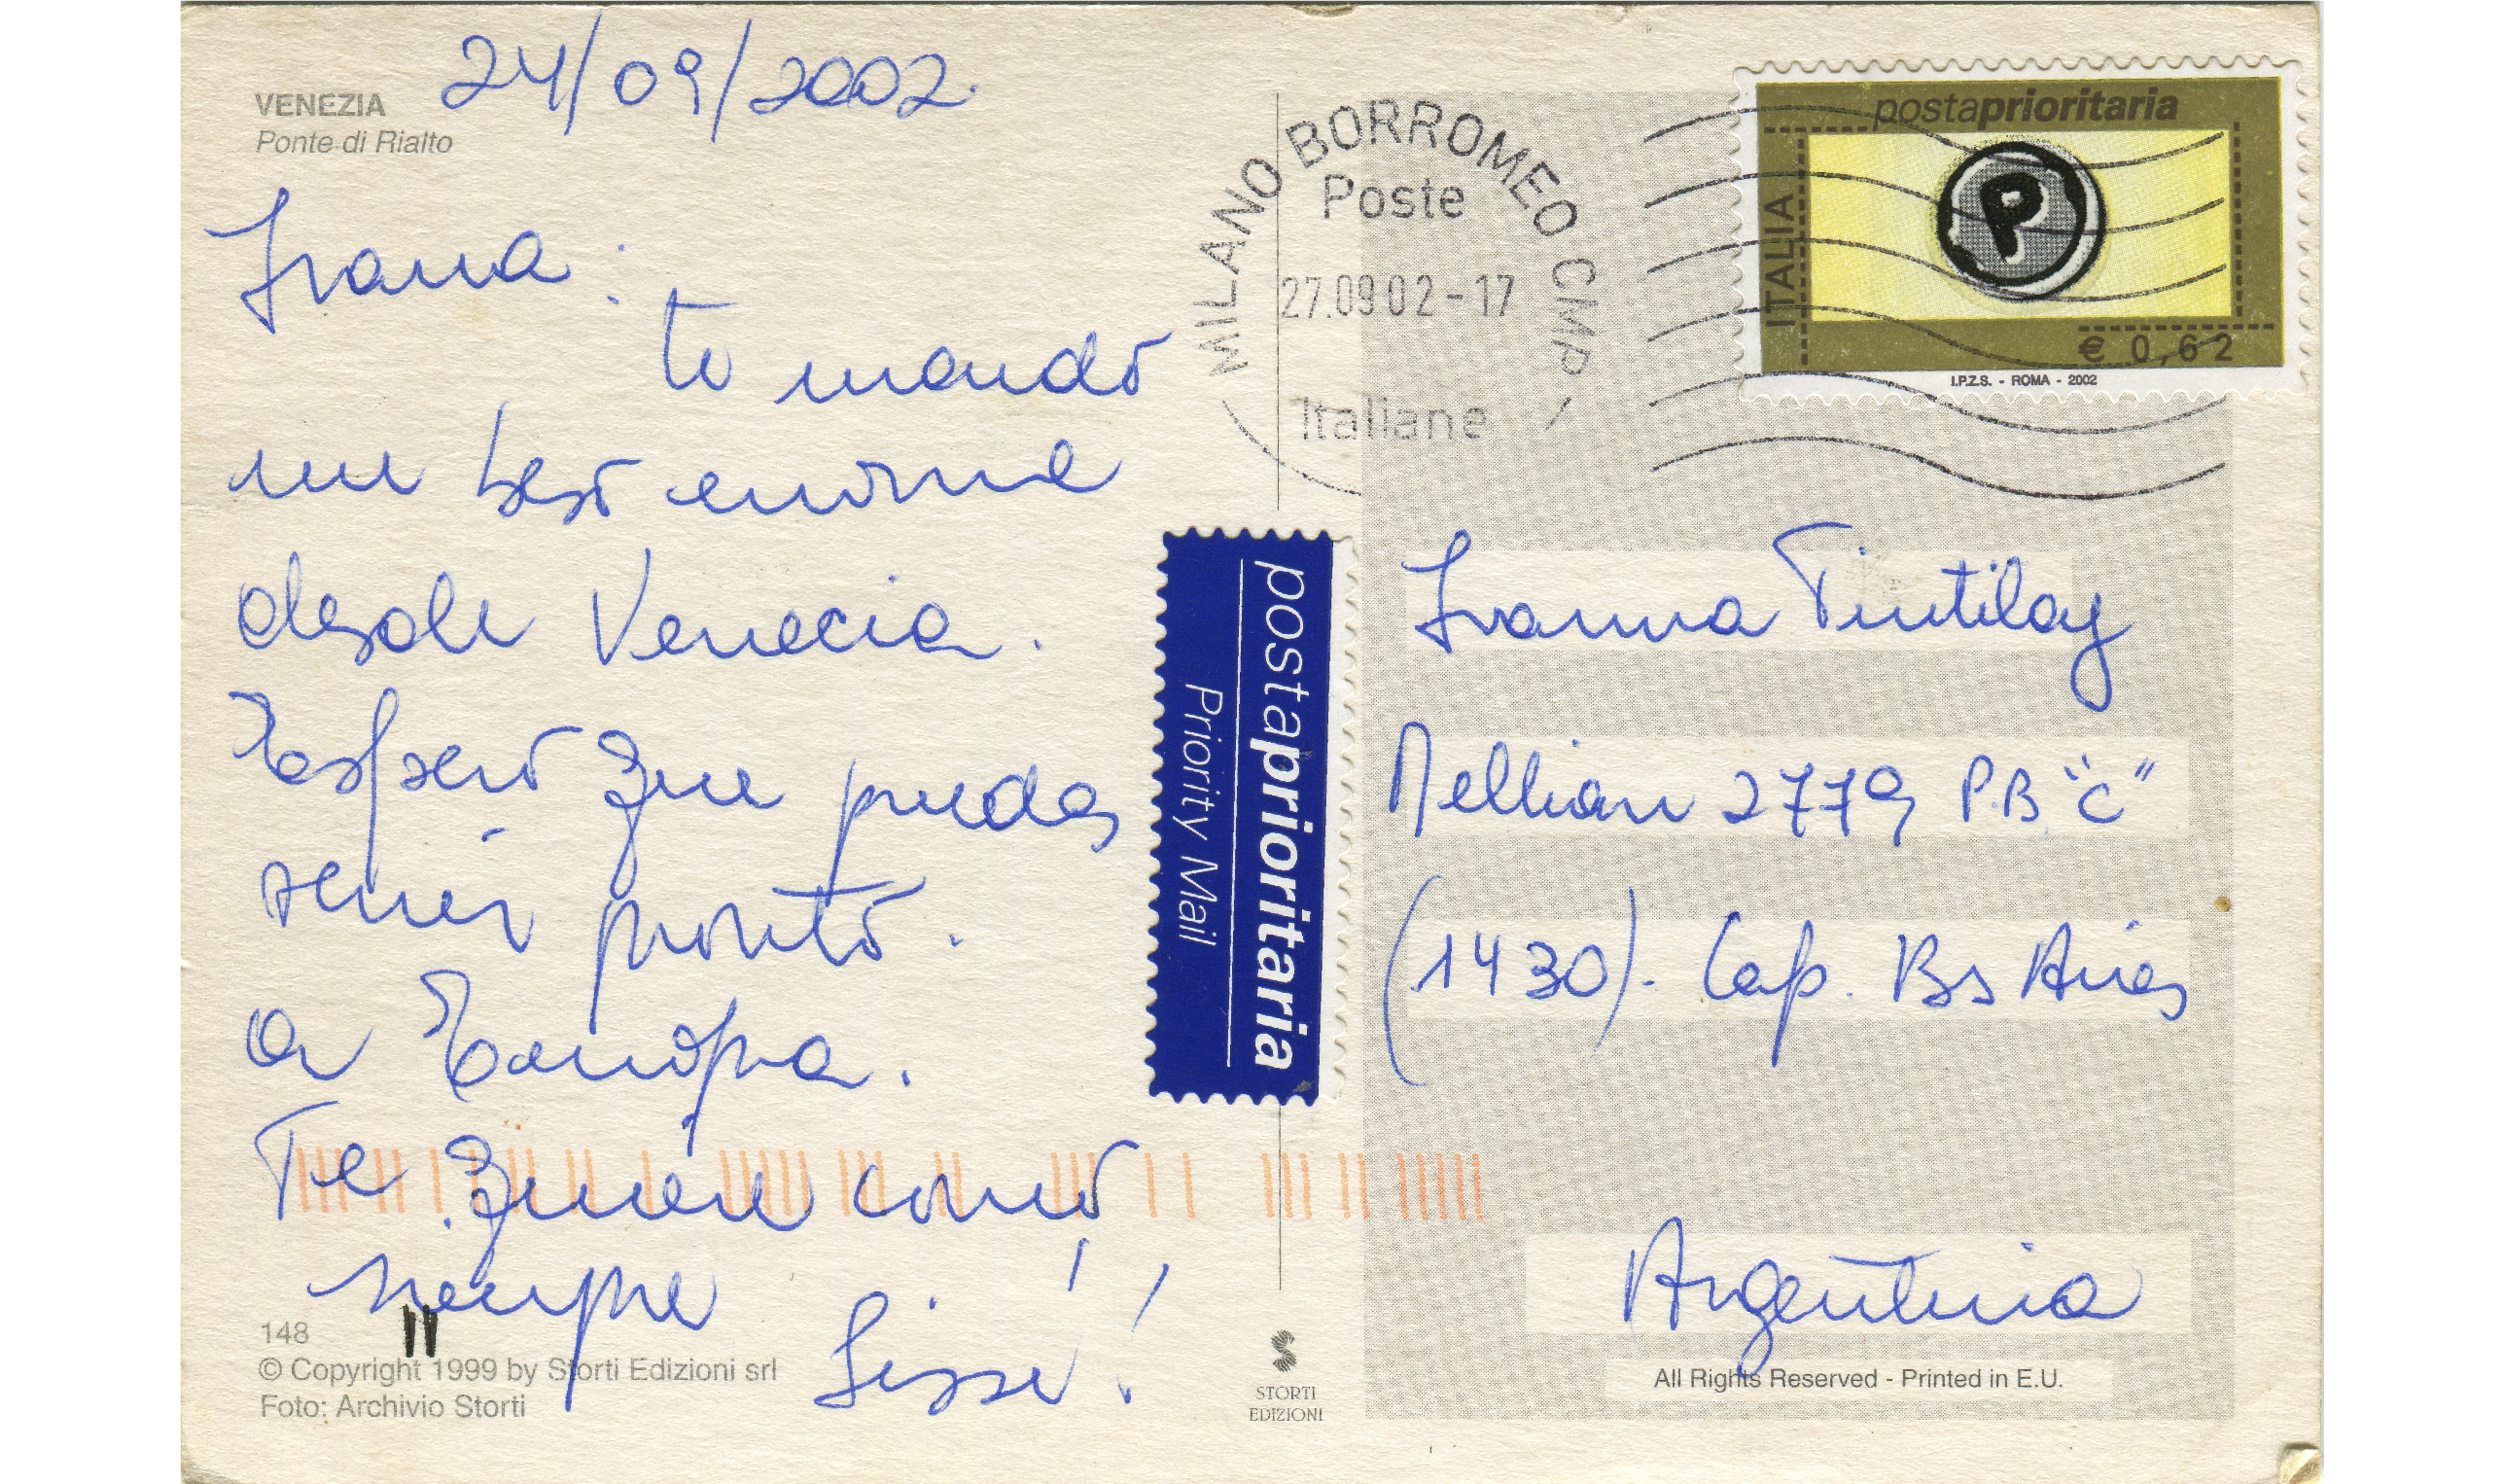 24/09/2002.
VENEZIA
Ponte di Rialto
Ivana:
te mando
un beso enorme
desde Venecia.
Espero que puedas
venir pronto.
a Europa.
Te quiere como
siempre
Sissi!
148
© Copyright 1999 by Storti Edizioni srl
Foto: Archivio Storti
MILANO BORROMEO CMP
Poste
27.09 02-17
Italiane
postaprioritaria
ITALIA
P
€ 0,62
I.P.Z.S. - ROMA - 2002
postaprioritaria
Priority Mail
Ivanna Tintilay
Mellian 2779 P.B "C"
(1430). Cap. Bs Aires
Argentina
STORTI
EDIZIONI
All Rights Reserved - Printed in E.U.